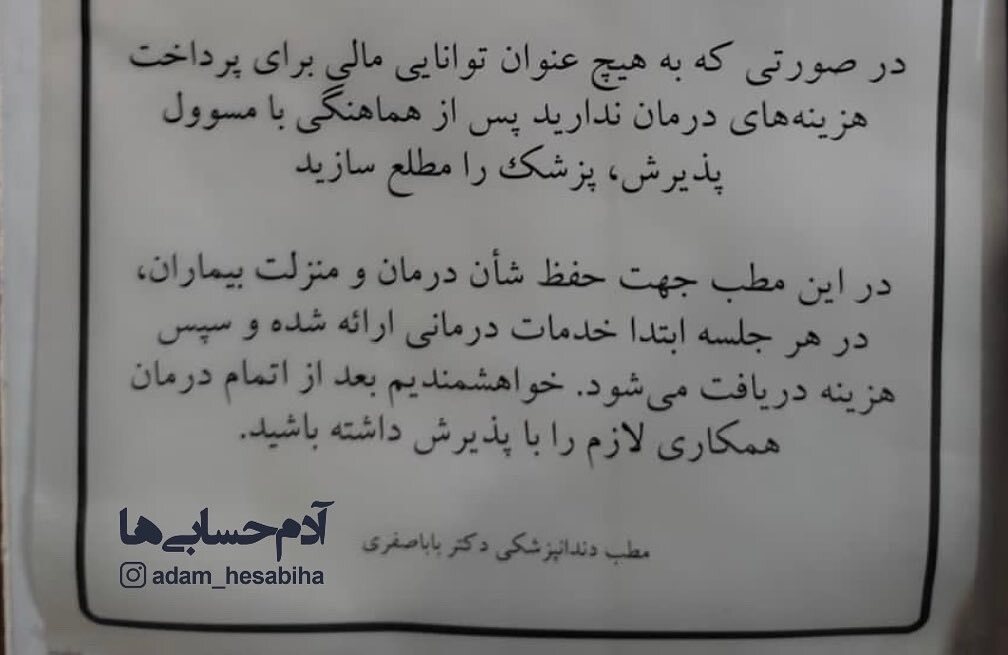 در صورتی که به هیچ عنوان توانایی مالی برای پرداخت
هزینه‌های درمان ندارید پس از هماهنگی با مسوول
پذیرش، پزشک را مطلع سازید
در این مطب جهت حفظ شأن درمان و منزلت بیماران،
در هر جلسه ابتدا خدمات درمانی ارائه شده و سپس
هزینه دریافت می‌شود. خواهشمندیم بعد از اتمام درمان
همکاری لازم را با پذیرش داشته باشید.
مطب دندانپزشکی دکتر باباصفری
آدم‌حسابی‌ها
adam_hesabiha